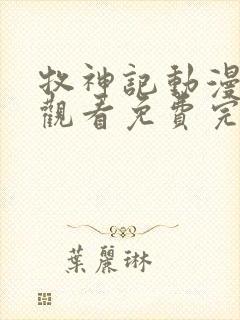 牧神記動漫
觀看免費完
葉麗琳